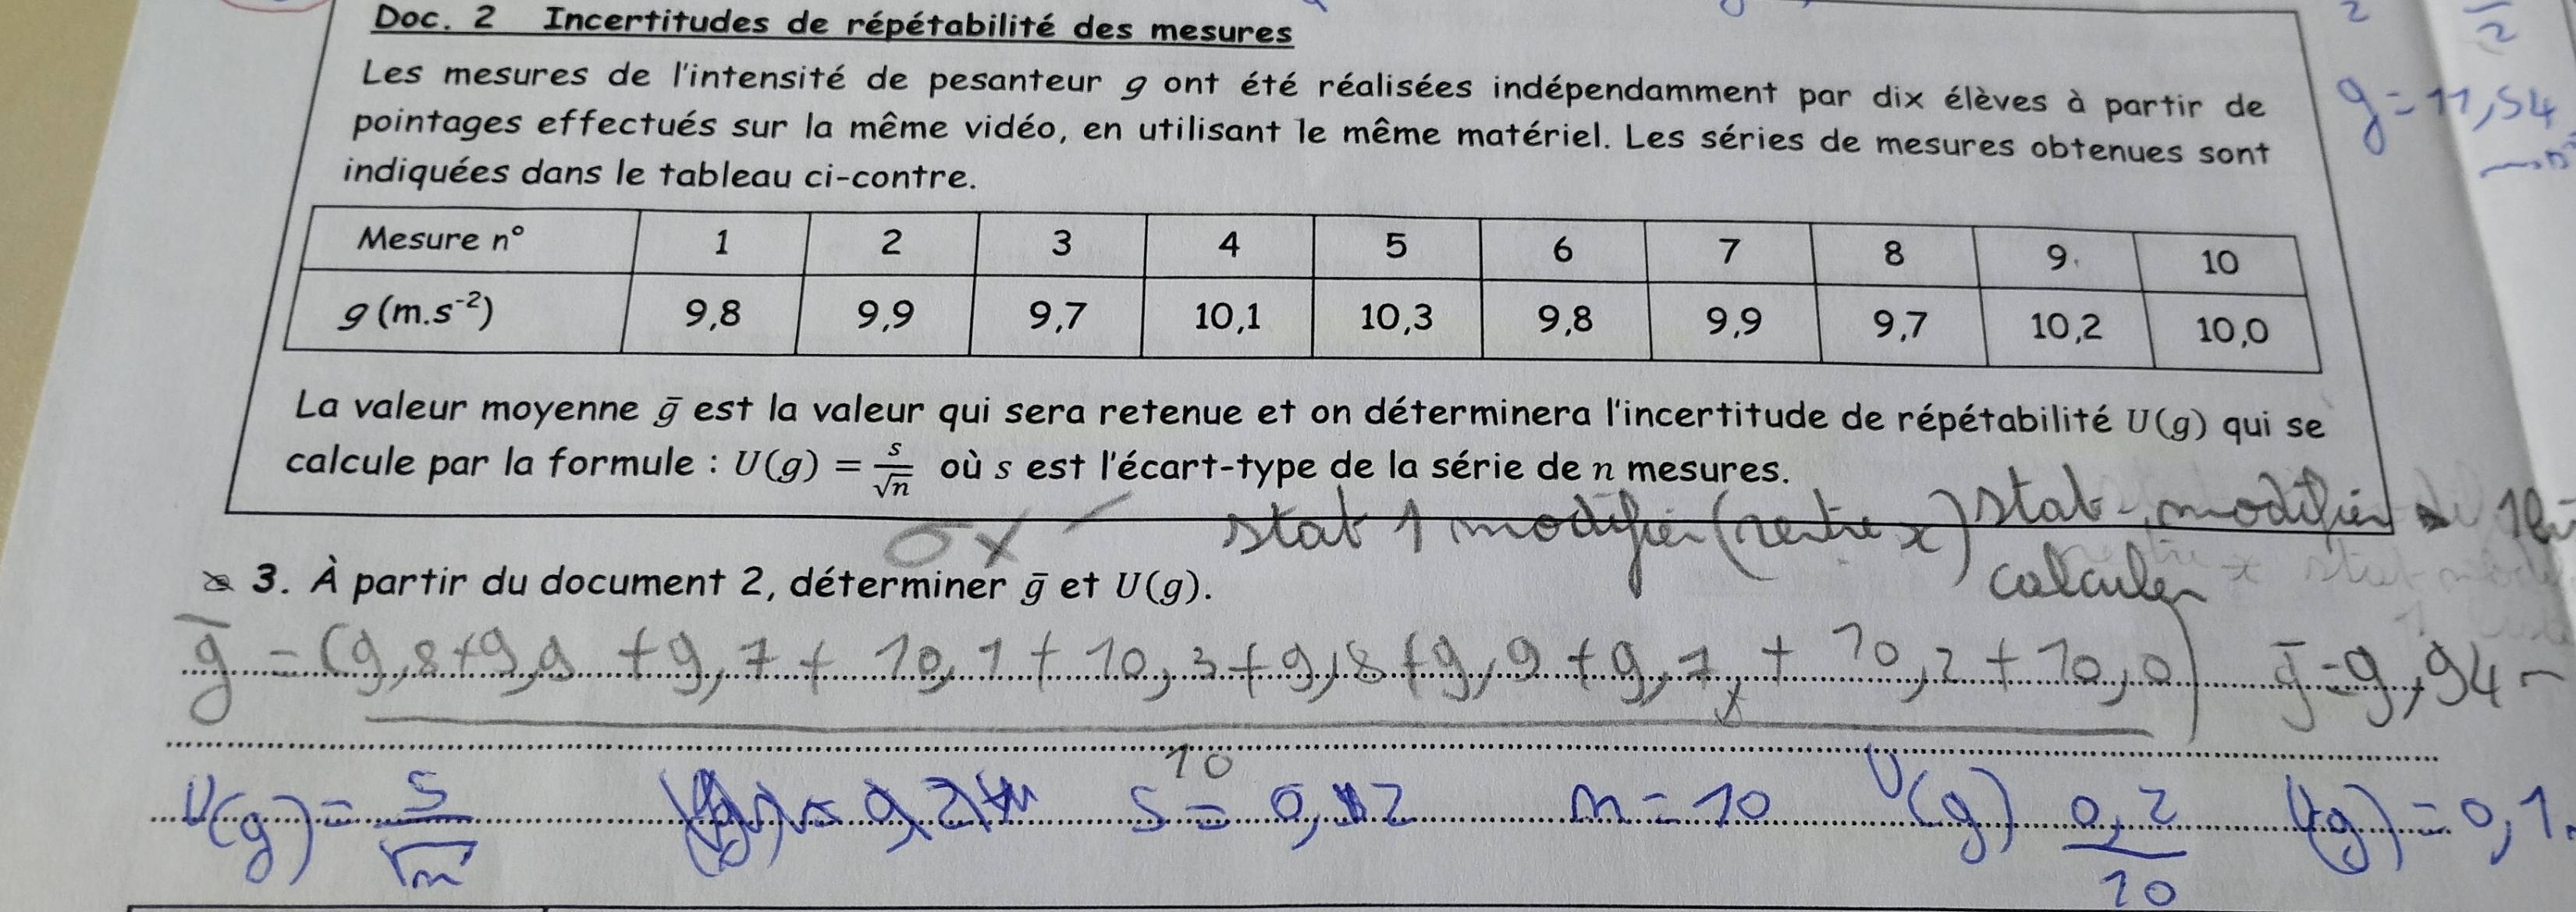 Doc. 2 Incertitudes de répétabilité des mesures
Les mesures de l'intensité de pesanteur g ont été réalisées indépendamment par dix élèves à partir de
pointages effectués sur la même vidéo, en utilisant le même matériel. Les séries de mesures obtenues sont
indiquées dans le tableau ci-contre.
g = 11,54
Mesure n° 1 2 3 4 5 6 7 8 9 10
g (m.s⁻²) 9,8 9,9 9,7 10,1 10,3 9,8 9,9 9,7 10,2 10,0
La valeur moyenne ḡ est la valeur qui sera retenue et on déterminera l'incertitude de répétabilité U(g) qui se
calcule par la formule : U(g) = s/√n où s est l'écart-type de la série de n mesures.
σx stat 1 modifier (rentre x) stat modifier
calculer
3. À partir du document 2, déterminer ḡ et U(g).
ḡ = (9,8+9,9+9,7+10,1+10,3+9,8+9,9+9,7+10,2+10,0) ḡ=9,94
10
U(g) = s/√n s = 0,2 n = 10 U(g) 0,2/10 U(g) = 0,1